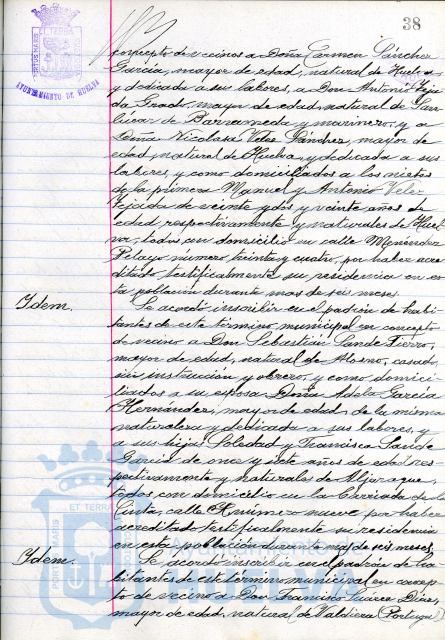 38
PORTUS MARIS ET TERRAE
AYUNTAMIENTO DE HUELVA
concepto de vecinos a Doña Carmen Sánchez
García, mayor de edad, natural de Huelva
y dedicada a sus labores, a Don Antonio Teja
da Prado, mayor de edad, natural de San
lúcar de Barrameda y marinero, y a
Doña Nicolasa Velez Sánchez, mayor de
edad, natural de Huelva, y dedicada a sus
labores, y como domiciliados a los nietos
de la primera Manuel y Antonio Velez
Tejada de veinte y dos y veinte años de
edad respectivamente y naturales de Huel
va, todos con domicilio en calle Menéndez
Pelayo número treinta y cuatro, por haber acre
ditado testificalmente su residencia en es
ta población durante mas de seis meses.
Idem.
Se acordó inscribir en el padrón de habi
tantes de este término municipal en concepto
de vecino a Don Sebastián Sande Fierro,
mayor de edad, natural de Alosno, casado,
sin instrucción y obrero, y como domici
liados a su esposa Doña Adela García
Hernández, mayor de edad, de la misma
naturaleza y dedicada a sus labores, y
a sus hijas Soledad y Francisca Sande
García de once y siete años de edad res
pectivamente y naturales de Aljaraque,
todos con domicilio en la Barriada de la
calle número nueve por haber
acreditado testificalmente su residencia
en esta población durante mas de seis meses.
Idem.
Se acordó inscribir en el padrón de ha
bitantes de este término municipal en concep
to de vecino a Don Francisco Suárez Díaz,
mayor de edad, natural de Valdiera (Portugal)